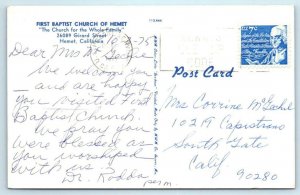 FIRST BAPTIST CHURCH OF HEMET
"The Church for the Whole Family"
26089 Girard Street
Hemet, California
Dear Mrs Mc Gechie
We welcome you
— and are happy
you visited First
Baptist Church.
We pray you
were blessed as
you worshiped
with us.
Dr. Rodda
Post Card
Mrs Corrine Mc Gechie
10219 Capistrano
South Gate
Calif
90280